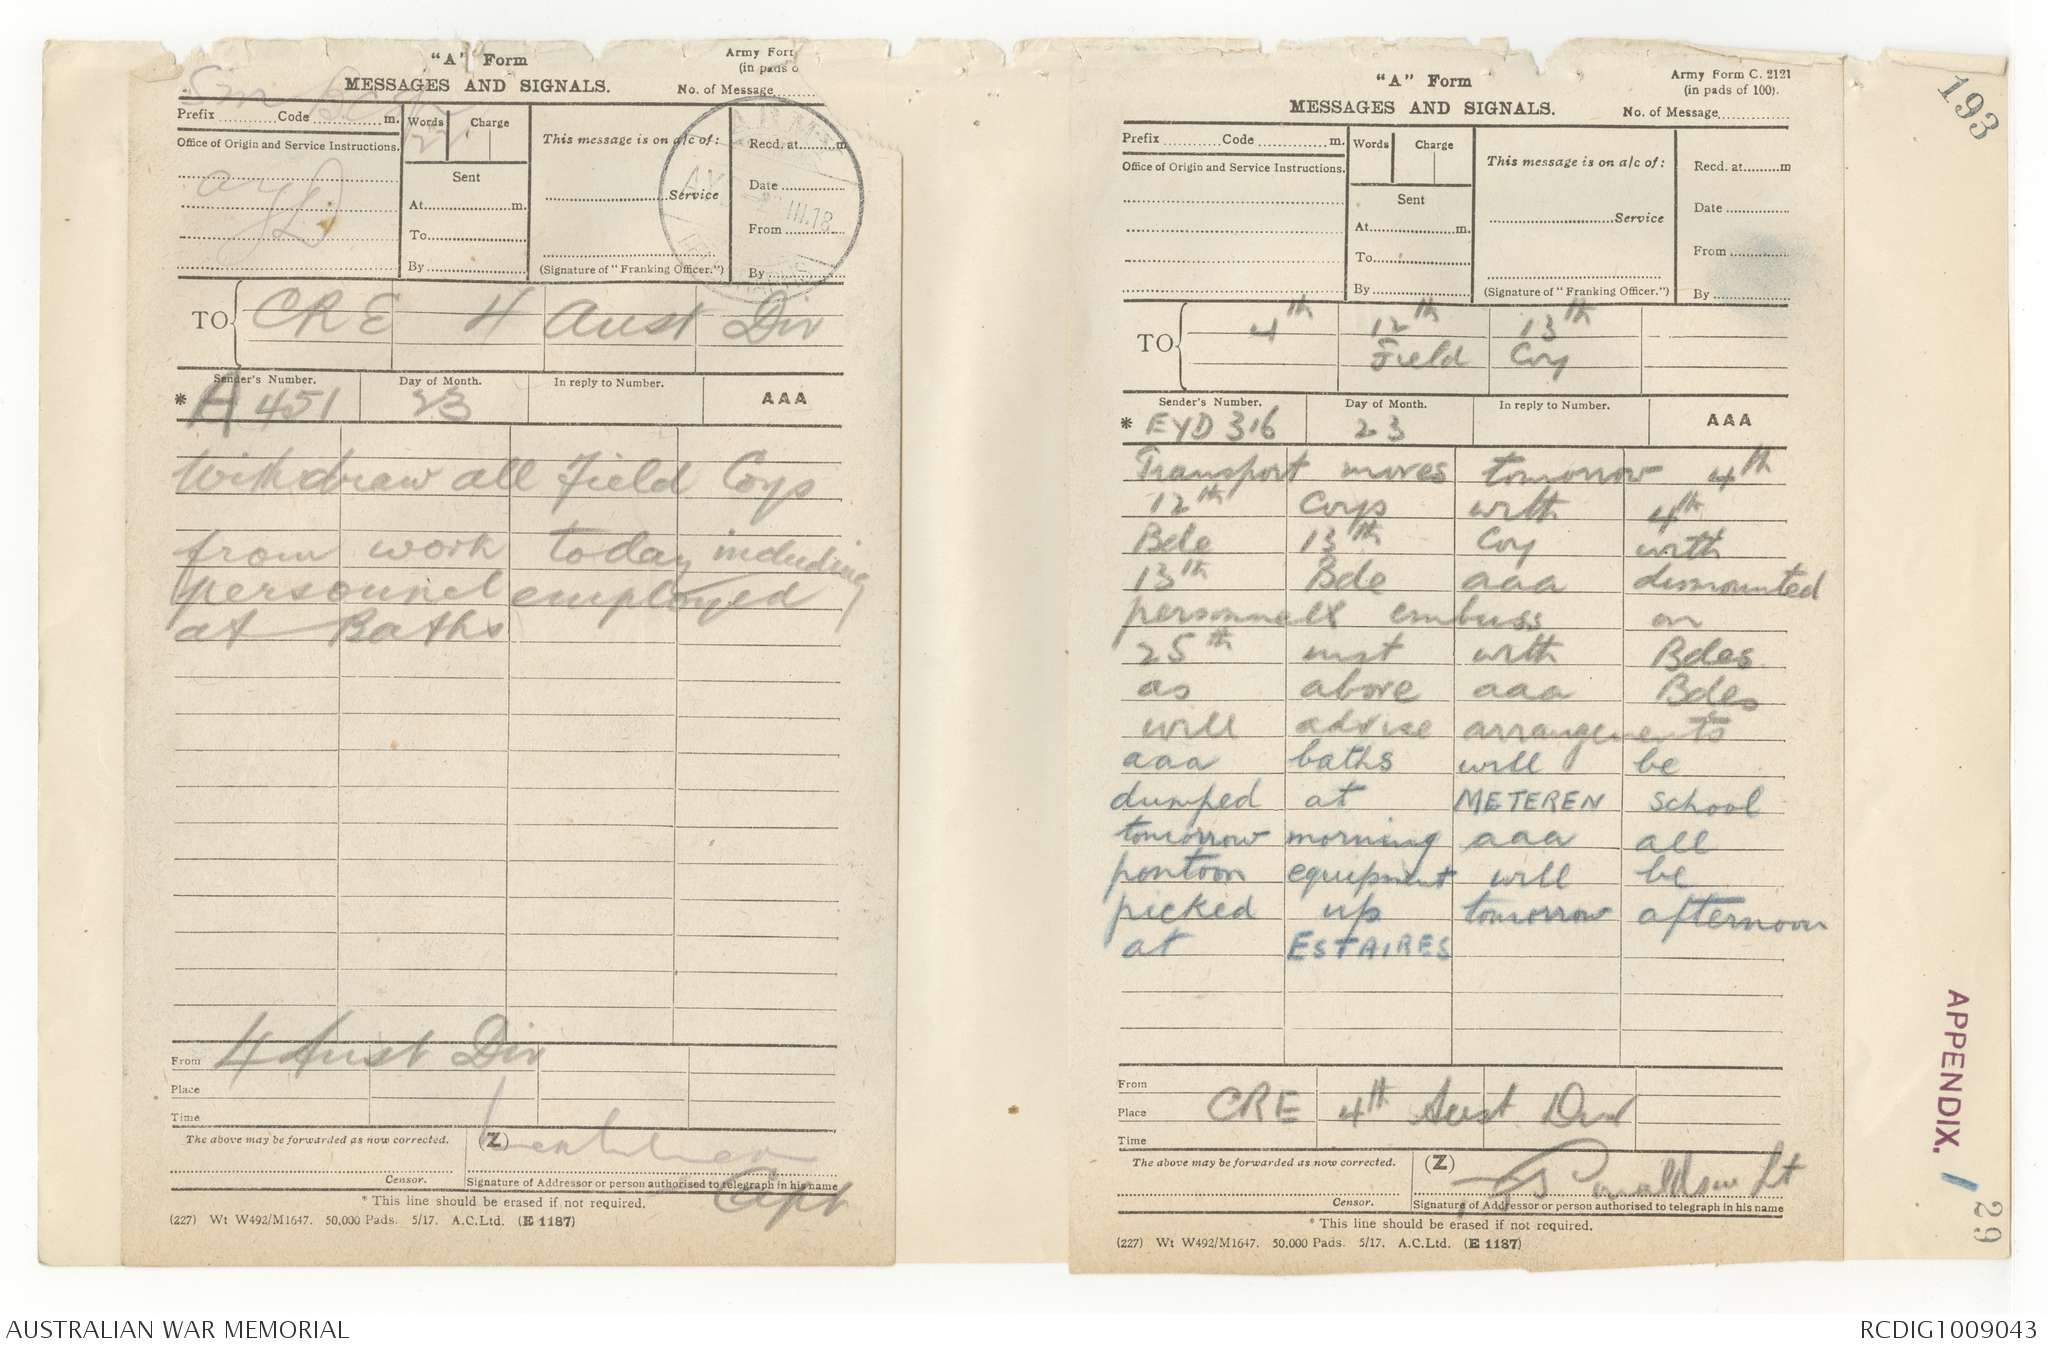 "A" Form
Army For
MESSAGES AND SIGNALS.
(in pads o
No. of Message
Prefix Code m.
Words Charge
Office of Origin and Service Instructions.
This message is on a/c of:
Recd. at m
Sent
Service
Date
At m.
III.18
To
From
By
(Signature of "Franking Officer.")
By
TO CRE 4 Aust Div
Sender's Number. Day of Month. In reply to Number.
* A 451 23 AAA
Withdraw all Field Coys
from work today including
personnel employed
at Baths
From 4 Aust Div
Place
Time
The above may be forwarded as now corrected. (Z)
Censor. Signature of Addressor or person authorised to telegraph in his name
Capt
* This line should be erased if not required.
(227) Wt W492/M1647. 50,000 Pads. 5/17. A.C.Ltd. (E 1187)
"A" Form
Army Form C. 2121
MESSAGES AND SIGNALS.
(in pads of 100).
No. of Message
Prefix Code m.
Words Charge
Office of Origin and Service Instructions.
This message is on a/c of:
Recd. at m
Sent
Service
Date
At m.
To
From
By
(Signature of "Franking Officer.")
By
TO 4th 12th 13th
Field Coy
Sender's Number. Day of Month. In reply to Number.
* EYD 316 23 AAA
Transport moves tomorrow 4th
12th Coys with 4th
Bde 13th Coy with
13th Bde aaa dismounted
personnell embuss on
25th inst with Bdes
as above aaa Bdes
will advise arrangements
aaa baths will be
dumped at METEREN school
tomorrow morning aaa all
pontoon equipment will be
picked up tomorrow afternoon
at ESTAIRES
From
Place CRE 4th Aust Div
Time
The above may be forwarded as now corrected. (Z)
Lt
Censor. Signature of Addressor or person authorised to telegraph in his name
* This line should be erased if not required.
(227) Wt W492/M1647. 50,000 Pads. 5/17. A.C.Ltd. (E 1187)
193
APPENDIX. 1
29
AUSTRALIAN WAR MEMORIAL
RCDIG1009043